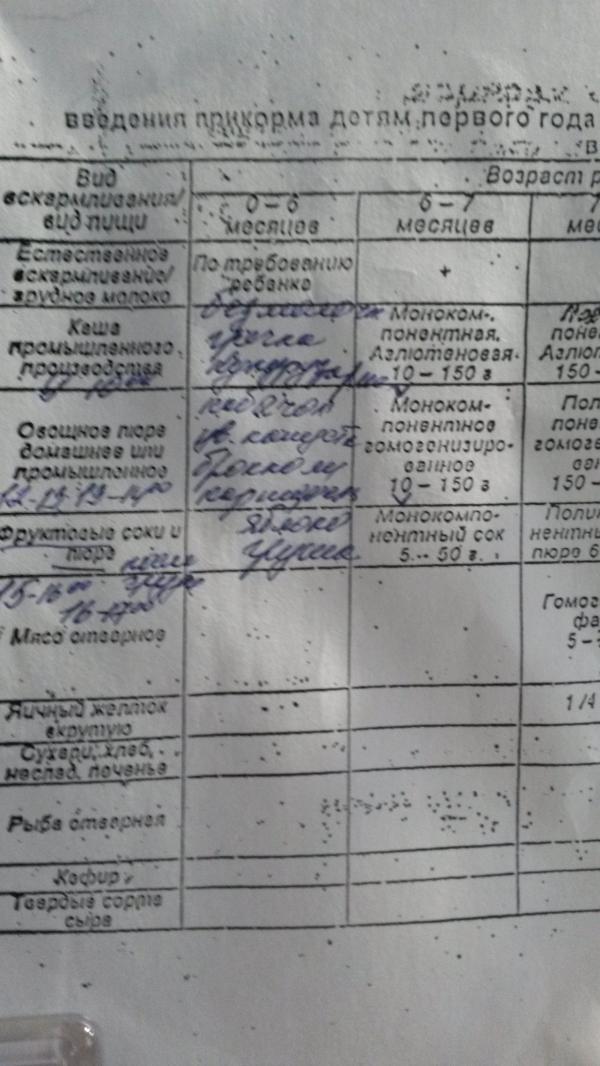 введения прикорма детям первого года
В
Вид вскармливания/ вид пищи
Возраст р
0 – 6 месяцев
6 – 7 месяцев
7
мес
Естественное вскармливание/ грудное молоко
По требованию ребенка
+
Каша промышленного производства
безмолочн
гречка
кукурузная
Моноком-
понентная.
Аглютеновая.
10 – 150 г
поне
Аглют
150 –
Овощное пюре домашнее или промышленное
12-13 13-14⁰⁰
кабачок
цв. капуста
брокколи
Моноком-
понентное
гомогенизиро-
ванное
10 – 150 г
Пол
поне
гомоге
ван
150 –
Фруктовые соки и пюре
15-16⁰⁰
16-17⁰⁰
яблоко
груша
Монокомпо-
нентный сок
5 -- 50 г.
Поли
нентн
пюре 6
Мясо отварное
Гомог
фа
5 –
Яичный желток вкрутую
1/4
Сухари, хлеб,neслад. печенье
Рыба отварная
Кефир
Твердые сорта сыра